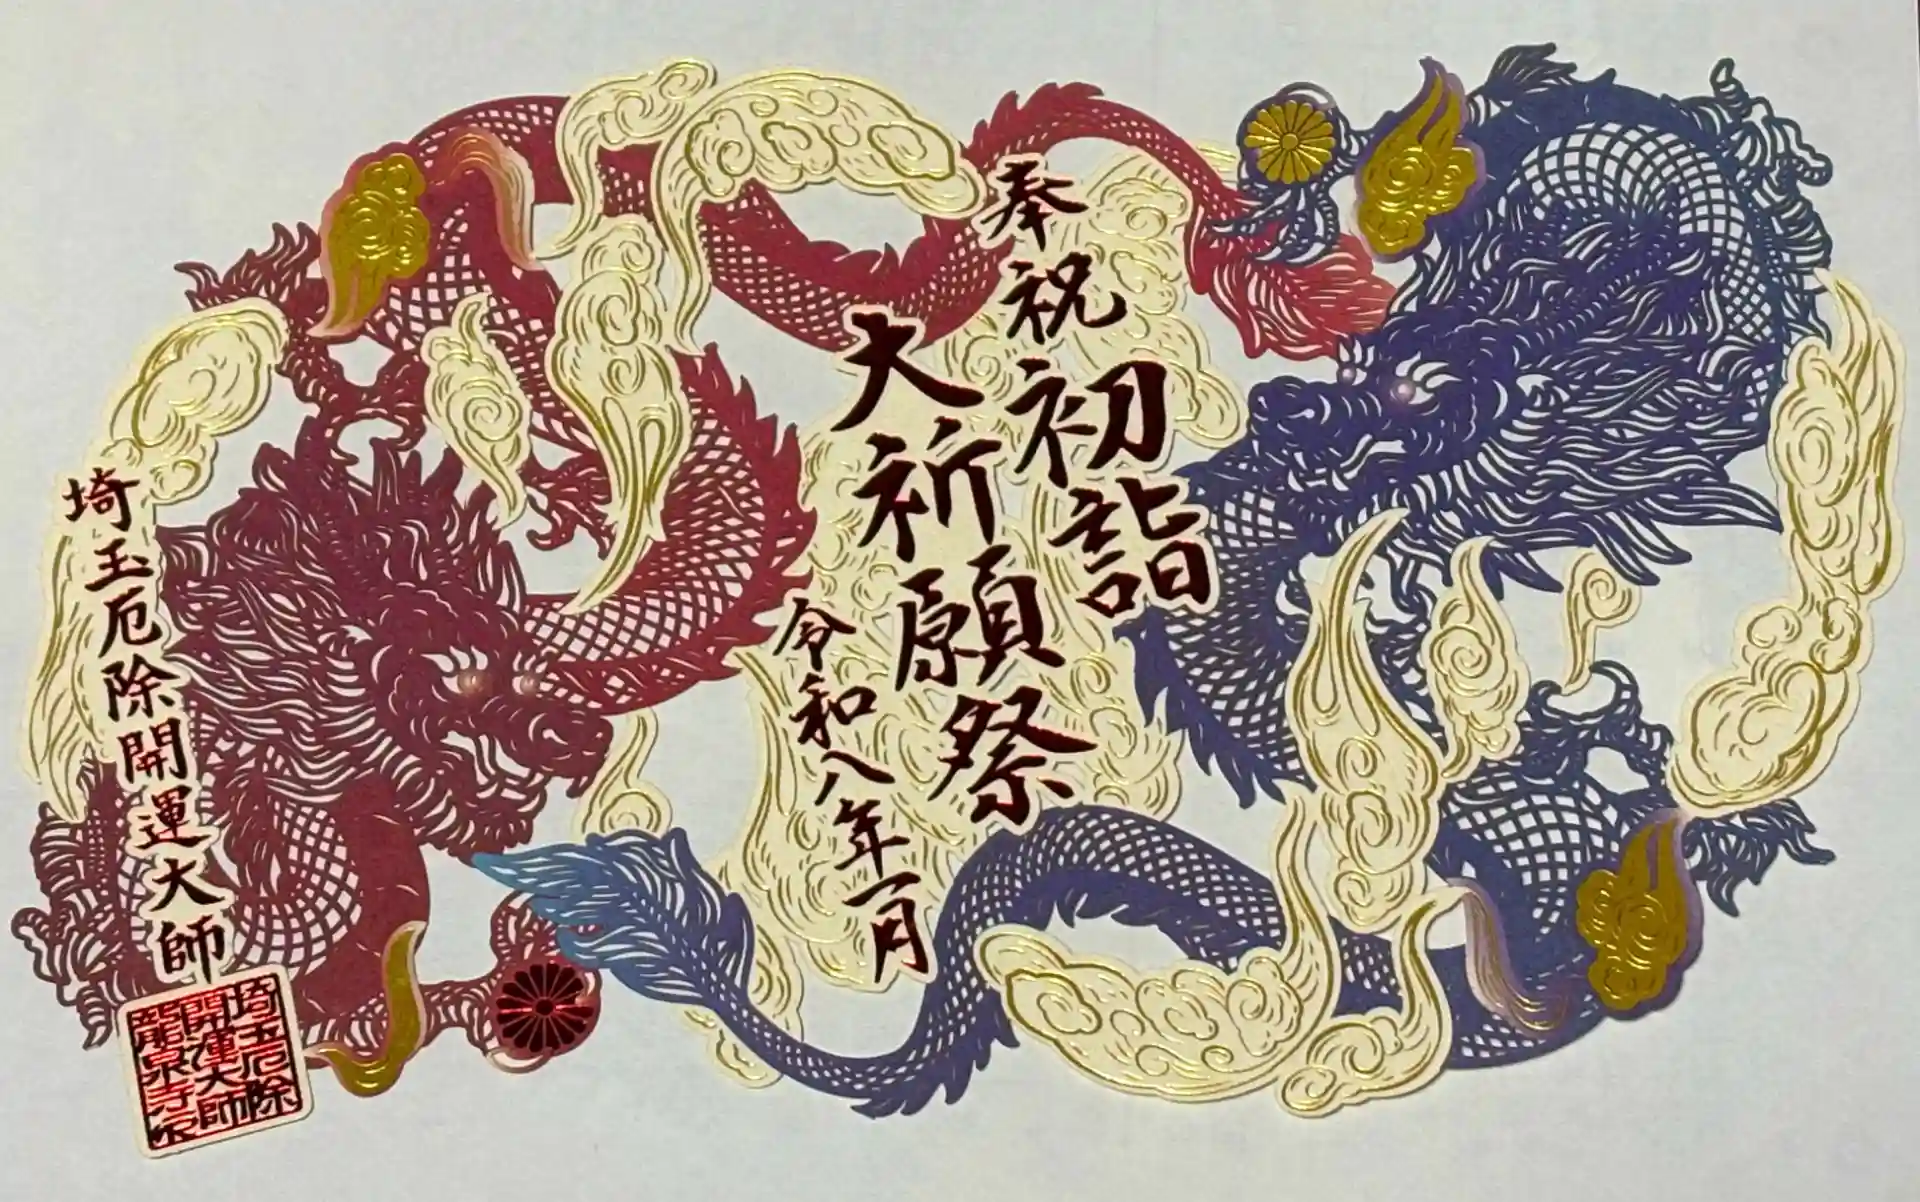 奉祝初詣
大祈願祭
令和八年一月
埼玉厄除開運大師
埼玉厄除
開運大師
龍泉寺印